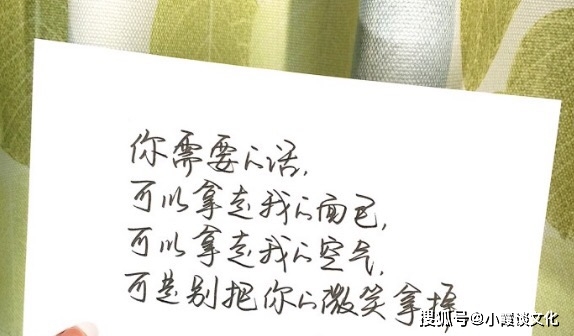 你需要的话,
可以拿走我的面包,
可以拿走我的空气,
可是别把你的微笑拿掉
搜狐号@小霞谈文化